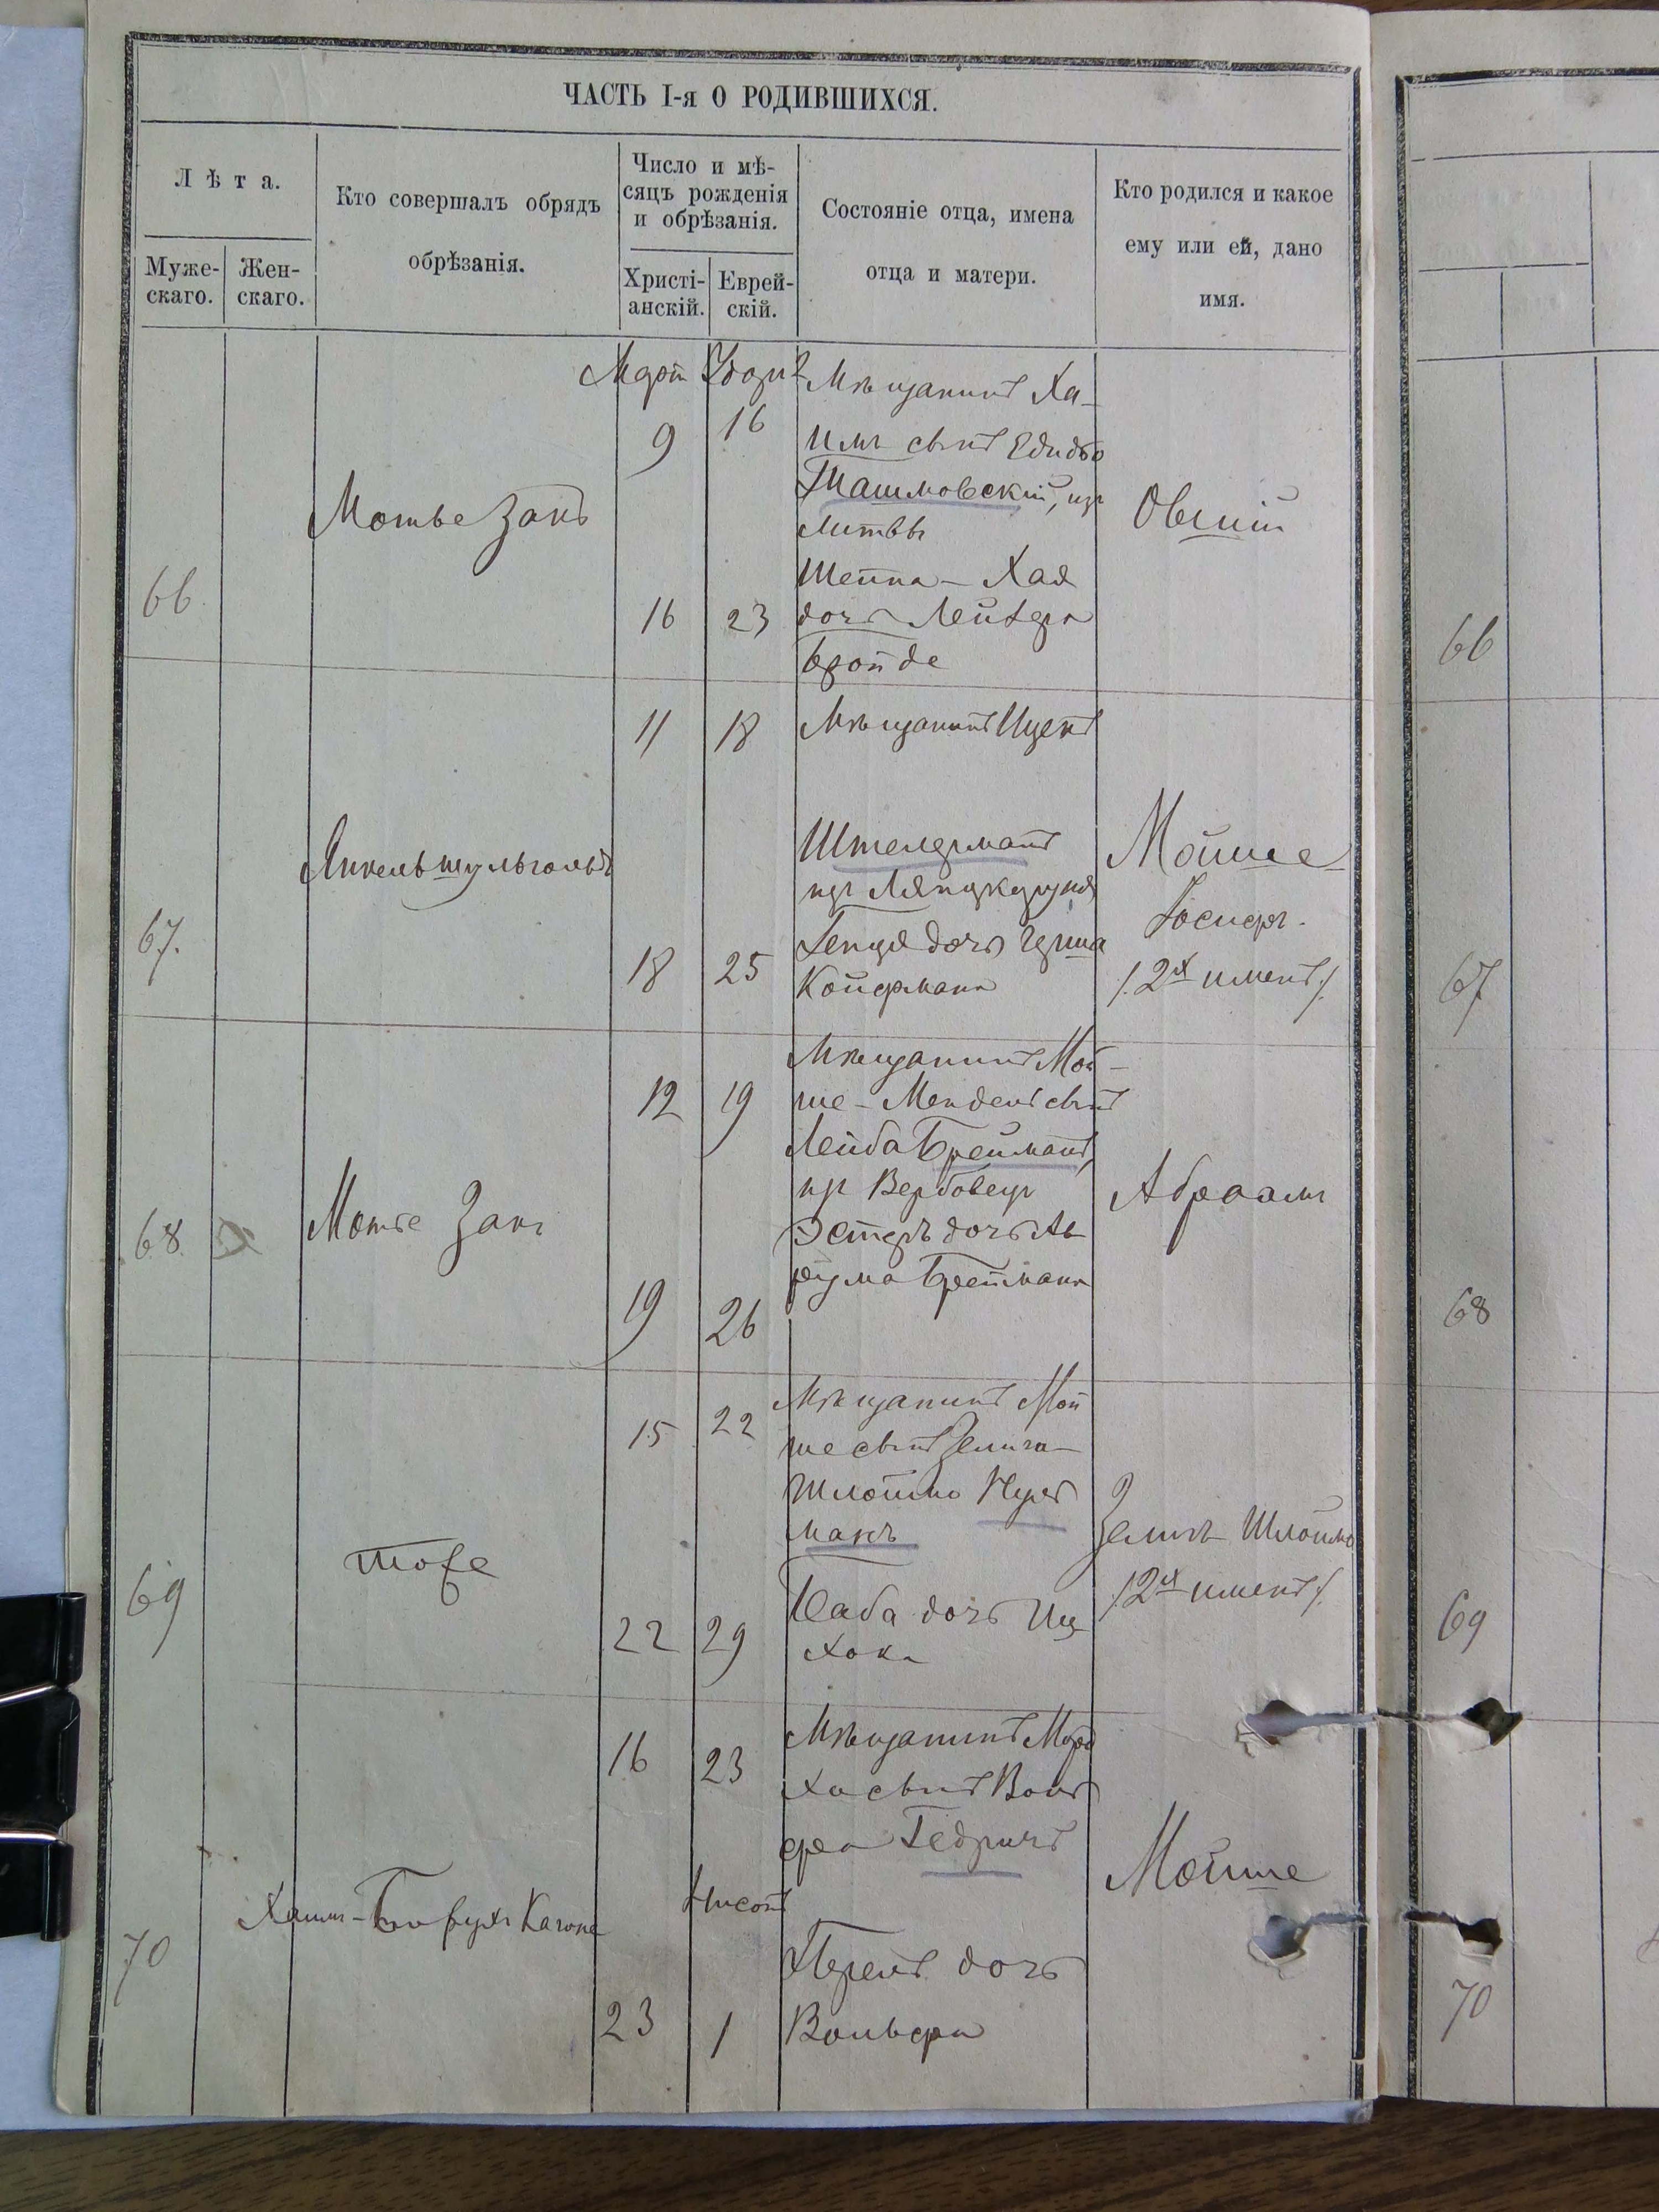 ЧАСТЬ I-я О РОДИВШИХСЯ.
Лѣта.
Муже-
скаго.
Жен-
скаго.
Кто совершалъ обрядъ
обрѣзанія.
Число и мѣ-
сяцъ рожденія
и обрѣзанія.
Христі-
анскій.
Еврей-
скій.
Состояніе отца, имена
отца и матери.
Кто родился и какое
ему или ей, дано
имя.
66
Мотье Закъ
Мартъ
9
16
16
23
Мѣщанинъ Ха-
имъ сынъ
Ташмовскій, изъ
Литвы
Шейна - Хая
дочь Лейзера
Бройде
Овшій
66
67.
Янкель Шульгольтъ
11
18
18
25
Мѣщанинъ Ицекъ
Штелерманъ
изъ
Генця дочь Герша
Койфмана
Мойше
Іосифъ.
/.2хъ именъ./
67
68.
Мотье Закъ
12
19
19
26
Мѣщанинъ Мой-
ше - Мендель сынъ
Лейба Брейманъ,
изъ Вербовецъ
Эстеръ дочь Ав
рума Бреймана
Абраамъ
68
69
тоже
15
22
22
29
Мѣщанинъ Мой
ше сынъ Зелига-
Шлоймо
манъ
дочь Иц
хока
Зелигъ Шлоймо
/.2хъ именъ./
69
70
Хаимъ-Борухъ Кагана
16
23
Нисонъ
23
1
Мѣщанинъ Мора
ха сынъ Воль
фа Гедричъ
Перель дочь
Вольфа
Мойше
70